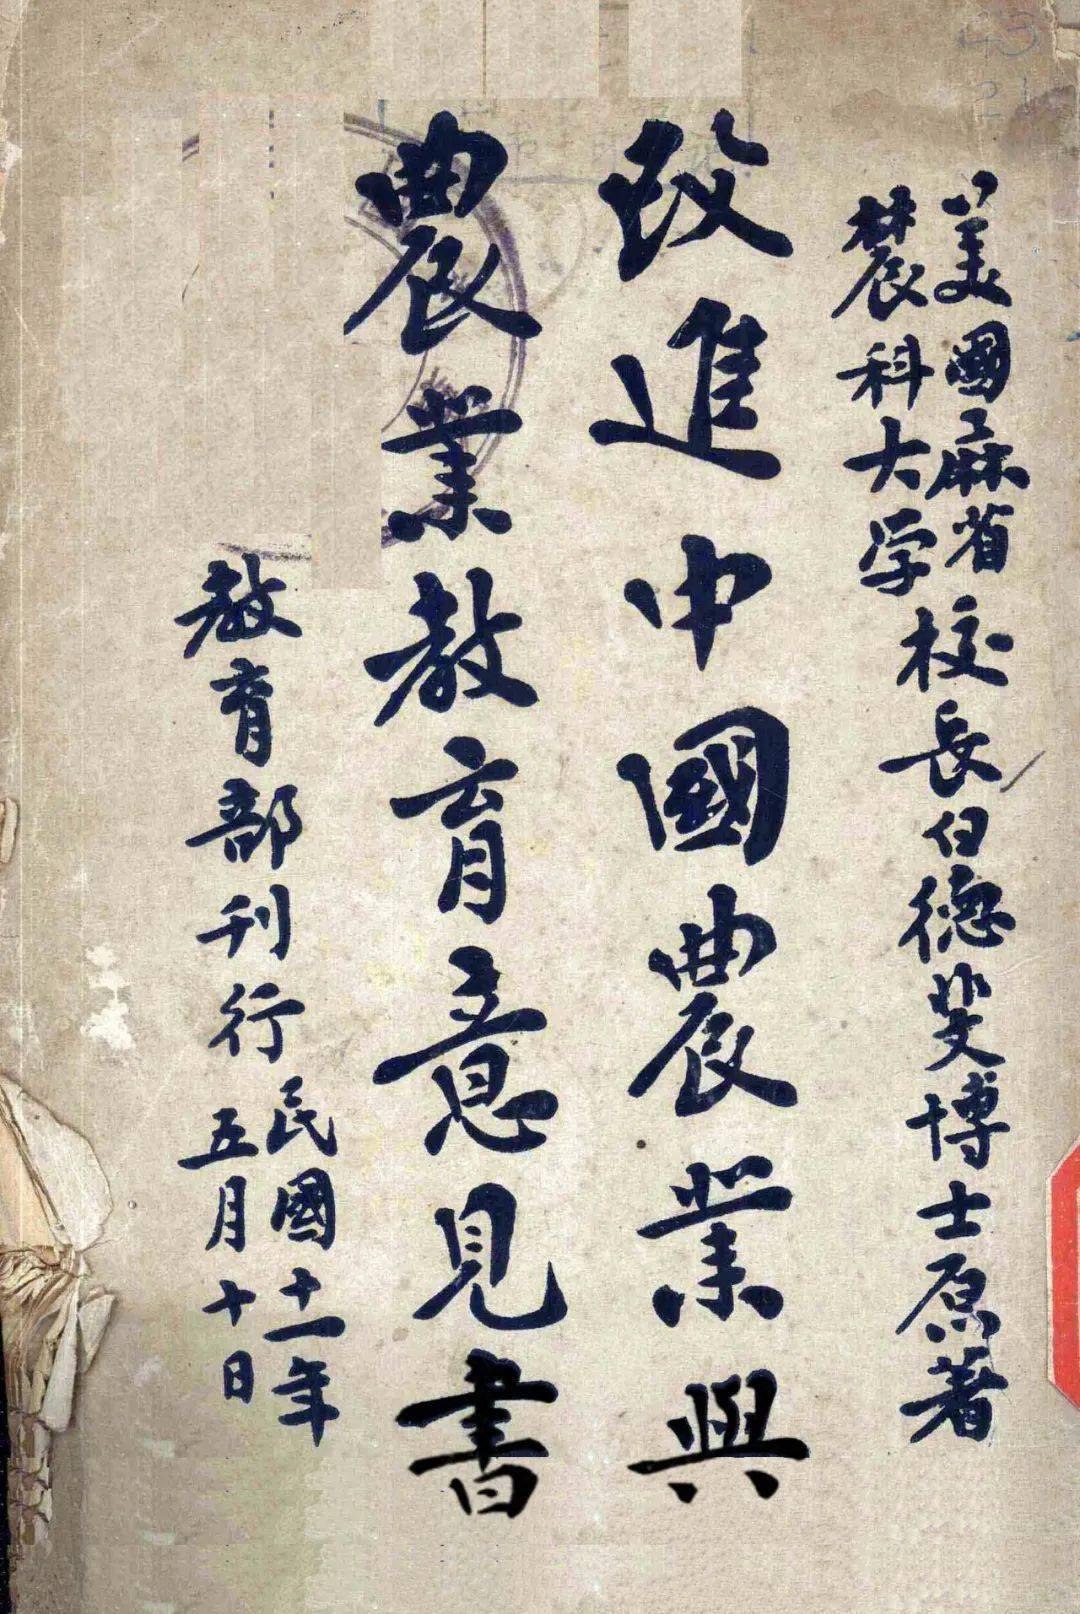 美國麻省
辳科大学
校長白德斐博士原著
改進中國農業與
農業教育意見書
教育部刊行
民國十一年
五月十日